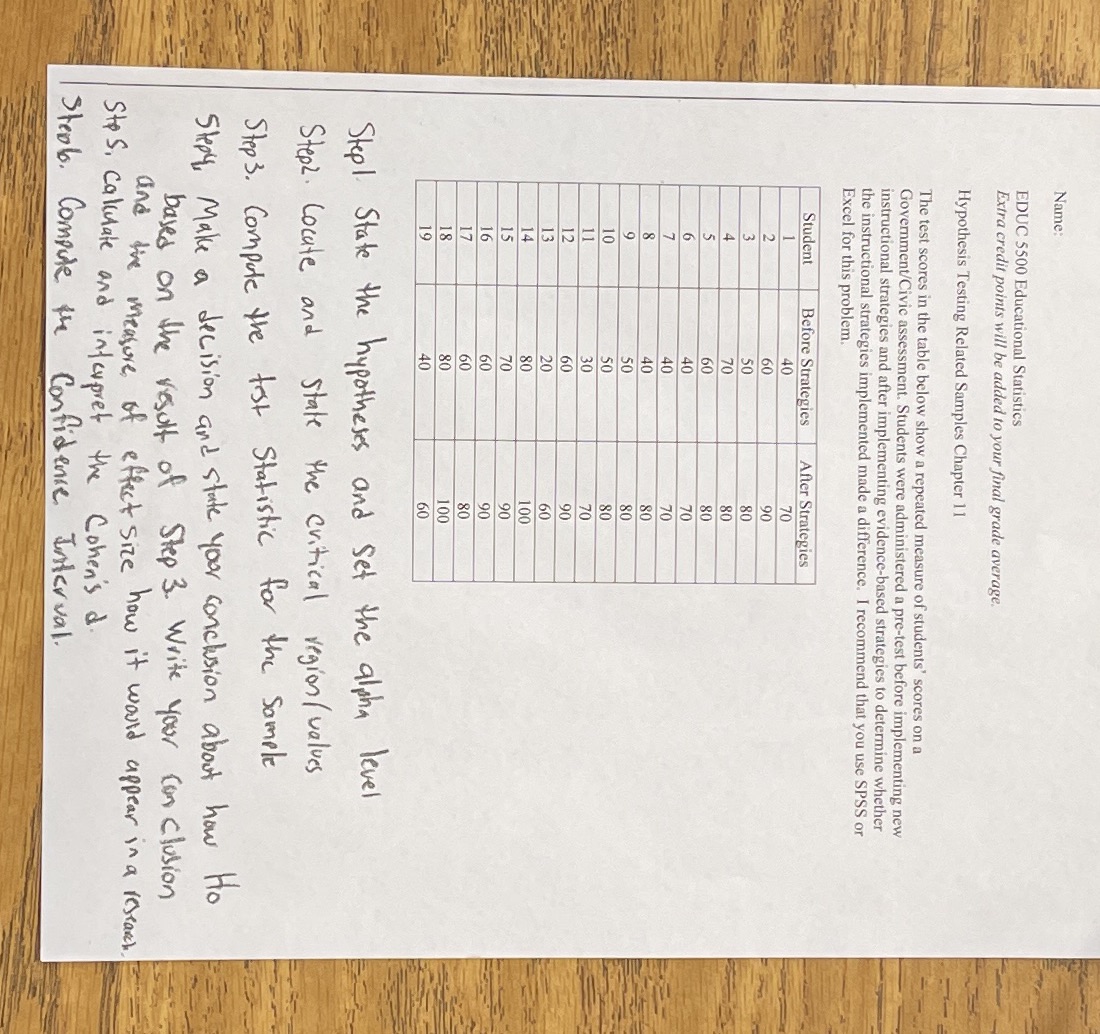 Name:
EDUC 5500 Educational Statistics
Extra credit points will be added to your final grade average.
Hypothesis Testing Related Samples Chapter 11
The test scores in the table below show a repeated measure of students' scores on a
Government/Civic assessment. Students were administered a pre-test before implementing new
instructional strategies and after implementing evidence-based strategies to determine whether
the instructional strategies implemented made a difference. I recommend that you use SPSS or
Excel for this problem.
Student Before Strategies After Strategies
1 40 70
2 60 90
3 50 80
4 70 80
5 60 80
6 40 70
7 40 70
8 40 80
9 50 80
10 50 80
11 30 70
12 60 90
13 20 60
14 80 100
15 70 90
16 60 90
17 60 80
18 80 100
19 40 60
Step1. State the hypotheses and set the alpha level
Step2. Locate and state the critical region/values
Step3. Compute the test statistic for the sample
Step4. Make a decision and state your conclusion about how Ho
based on the result of Step 3. Write your conclusion
and the measure of effect size how it would appear in a research.
Step5. Calculate and intrepret the Cohen's d.
Step6. Compute the Confidence Interval.